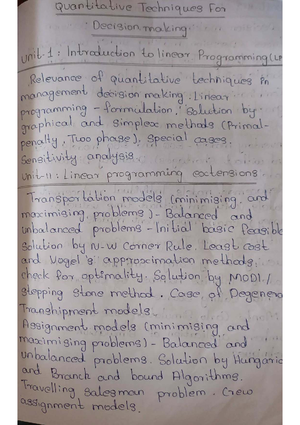 Quantitative Techniques For
Decision making
Unit-1: Introduction to linear Programming (LP
Relevance of quantitative techniques in
management decision making. Linear
programming - formulation, solution by
graphical and simplex methods (Primal-
penalty, Two phase), Special cases.
Sensitivity analysis.
Unit-II: Linear programming extensions
Transportation models (minimising and
maximising problems) - Balanced and
unbalanced problems - Initial basic feasible
solution by N-W Corner Rule, Least cost
and Vogel's approximation methods.
check for optimality. Solution by MODI /
stepping stone method. Case of Degenera
Transhipment models.
Assignment models (minimising and
maximising problems) - Balanced and
Unbalanced problems. Solution by Hungaric
and Branch and bound Algorithms.
Travelling salesman problem. Crew
assignment models.